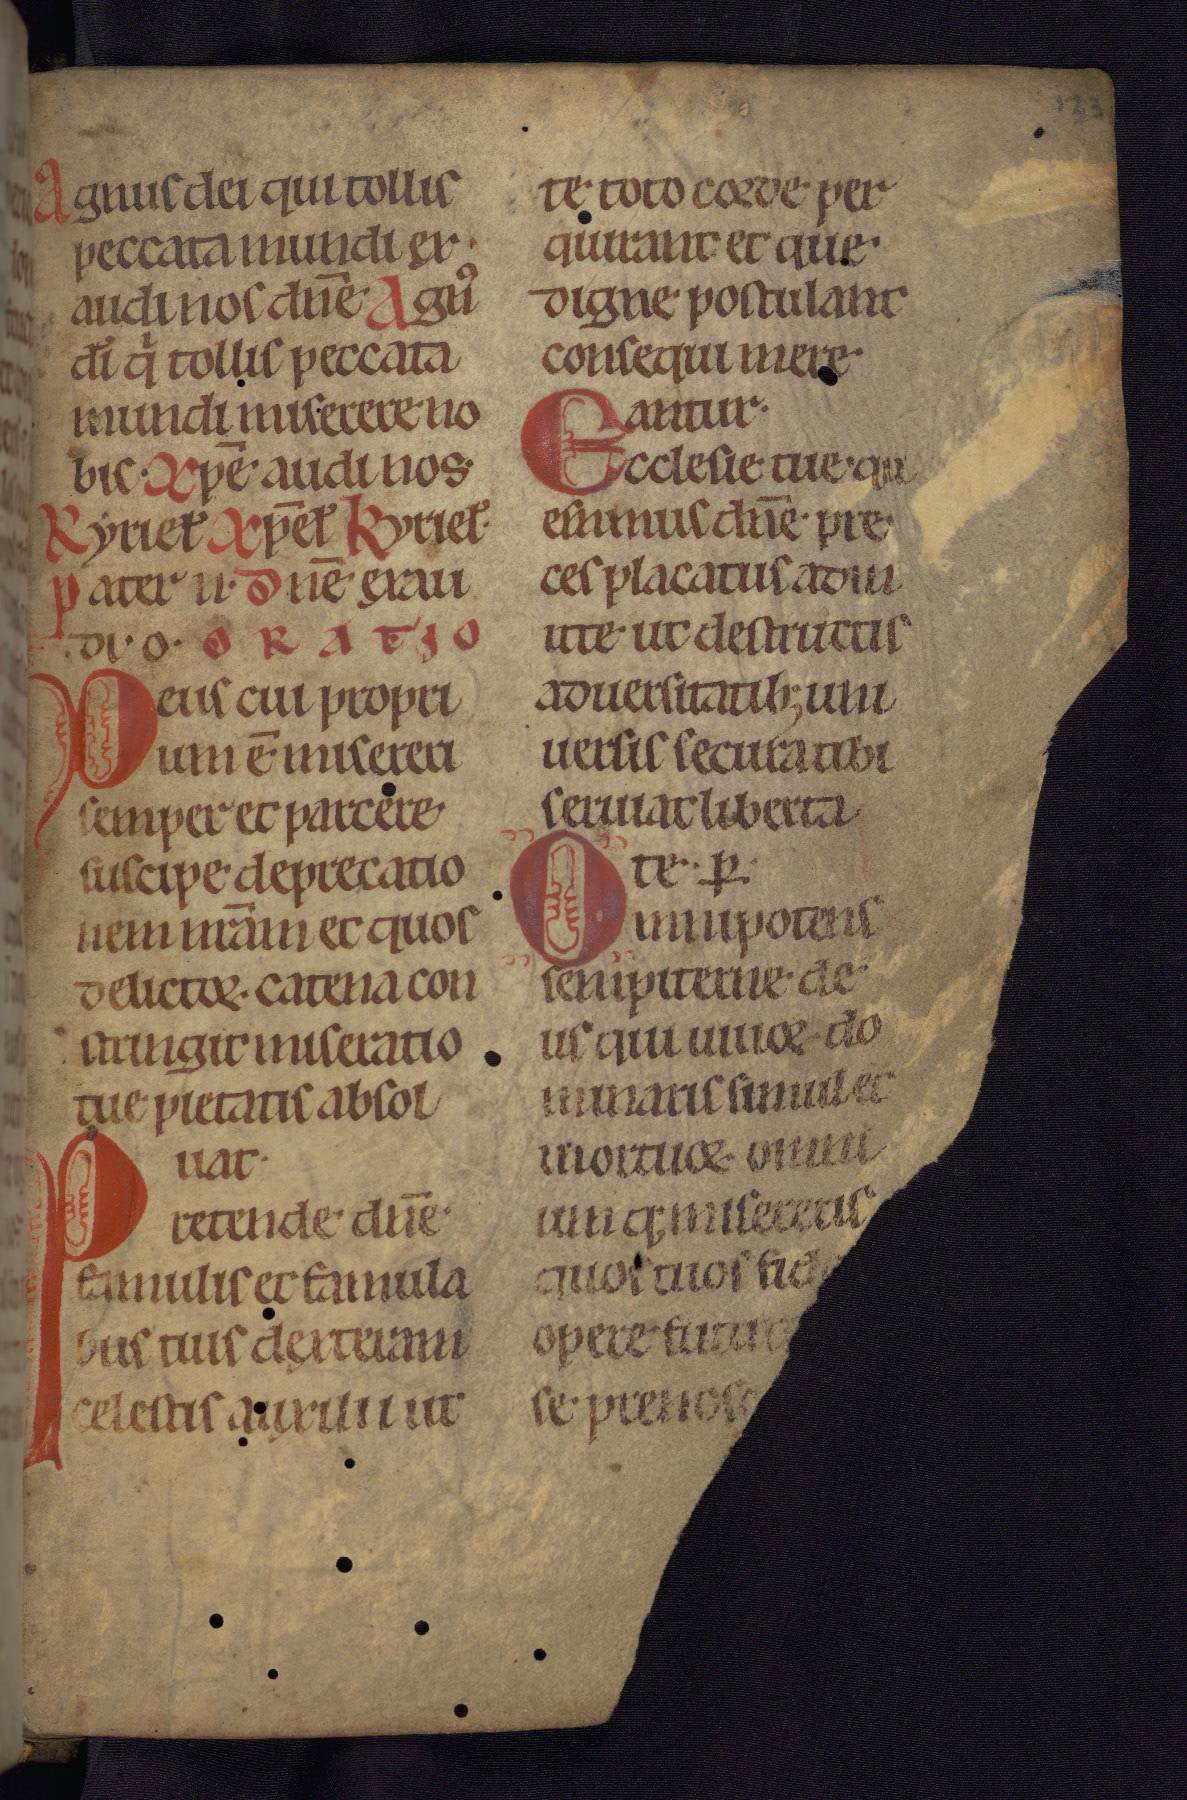 133
Agnus dei qui tollis
peccata mundi ex
audi nos dn̄e Agnꝰ
di q̇ tollis peccata
mundi miserere no
bis· Xp̄e audi nos
Kyriel̄ Xp̄el̄ Kyriel̄
Pater n· Dn̄e exaui
di· o· ORATIO
Deus cui propri
um ē misereri
semper et parcere
suscipe deprecatio
nem nr̄am et quos
delictoꝝ catena con
stringit miseratio
tue pietatis absol
uat·
Pretende dn̄e
famulis et famula
bus tuis dexteram
celestis auxilii ut
te toto corde per
quirant et que
digne postulant
consequi mere
antur·
Ecclesie tue qu
esumus dn̄e pre
ces placatus adm
itte ut destructis
aduersitatibꝫ uni
uersis secura tibi
seruiat liberta
te· ꝑ·
Omnipotens
sempiterne de
us qui uiuoꝝ do
minaris simul et
mortuoꝝ omni
umqꝫ misereris
quos tuos fide
opere futur
se prenosc